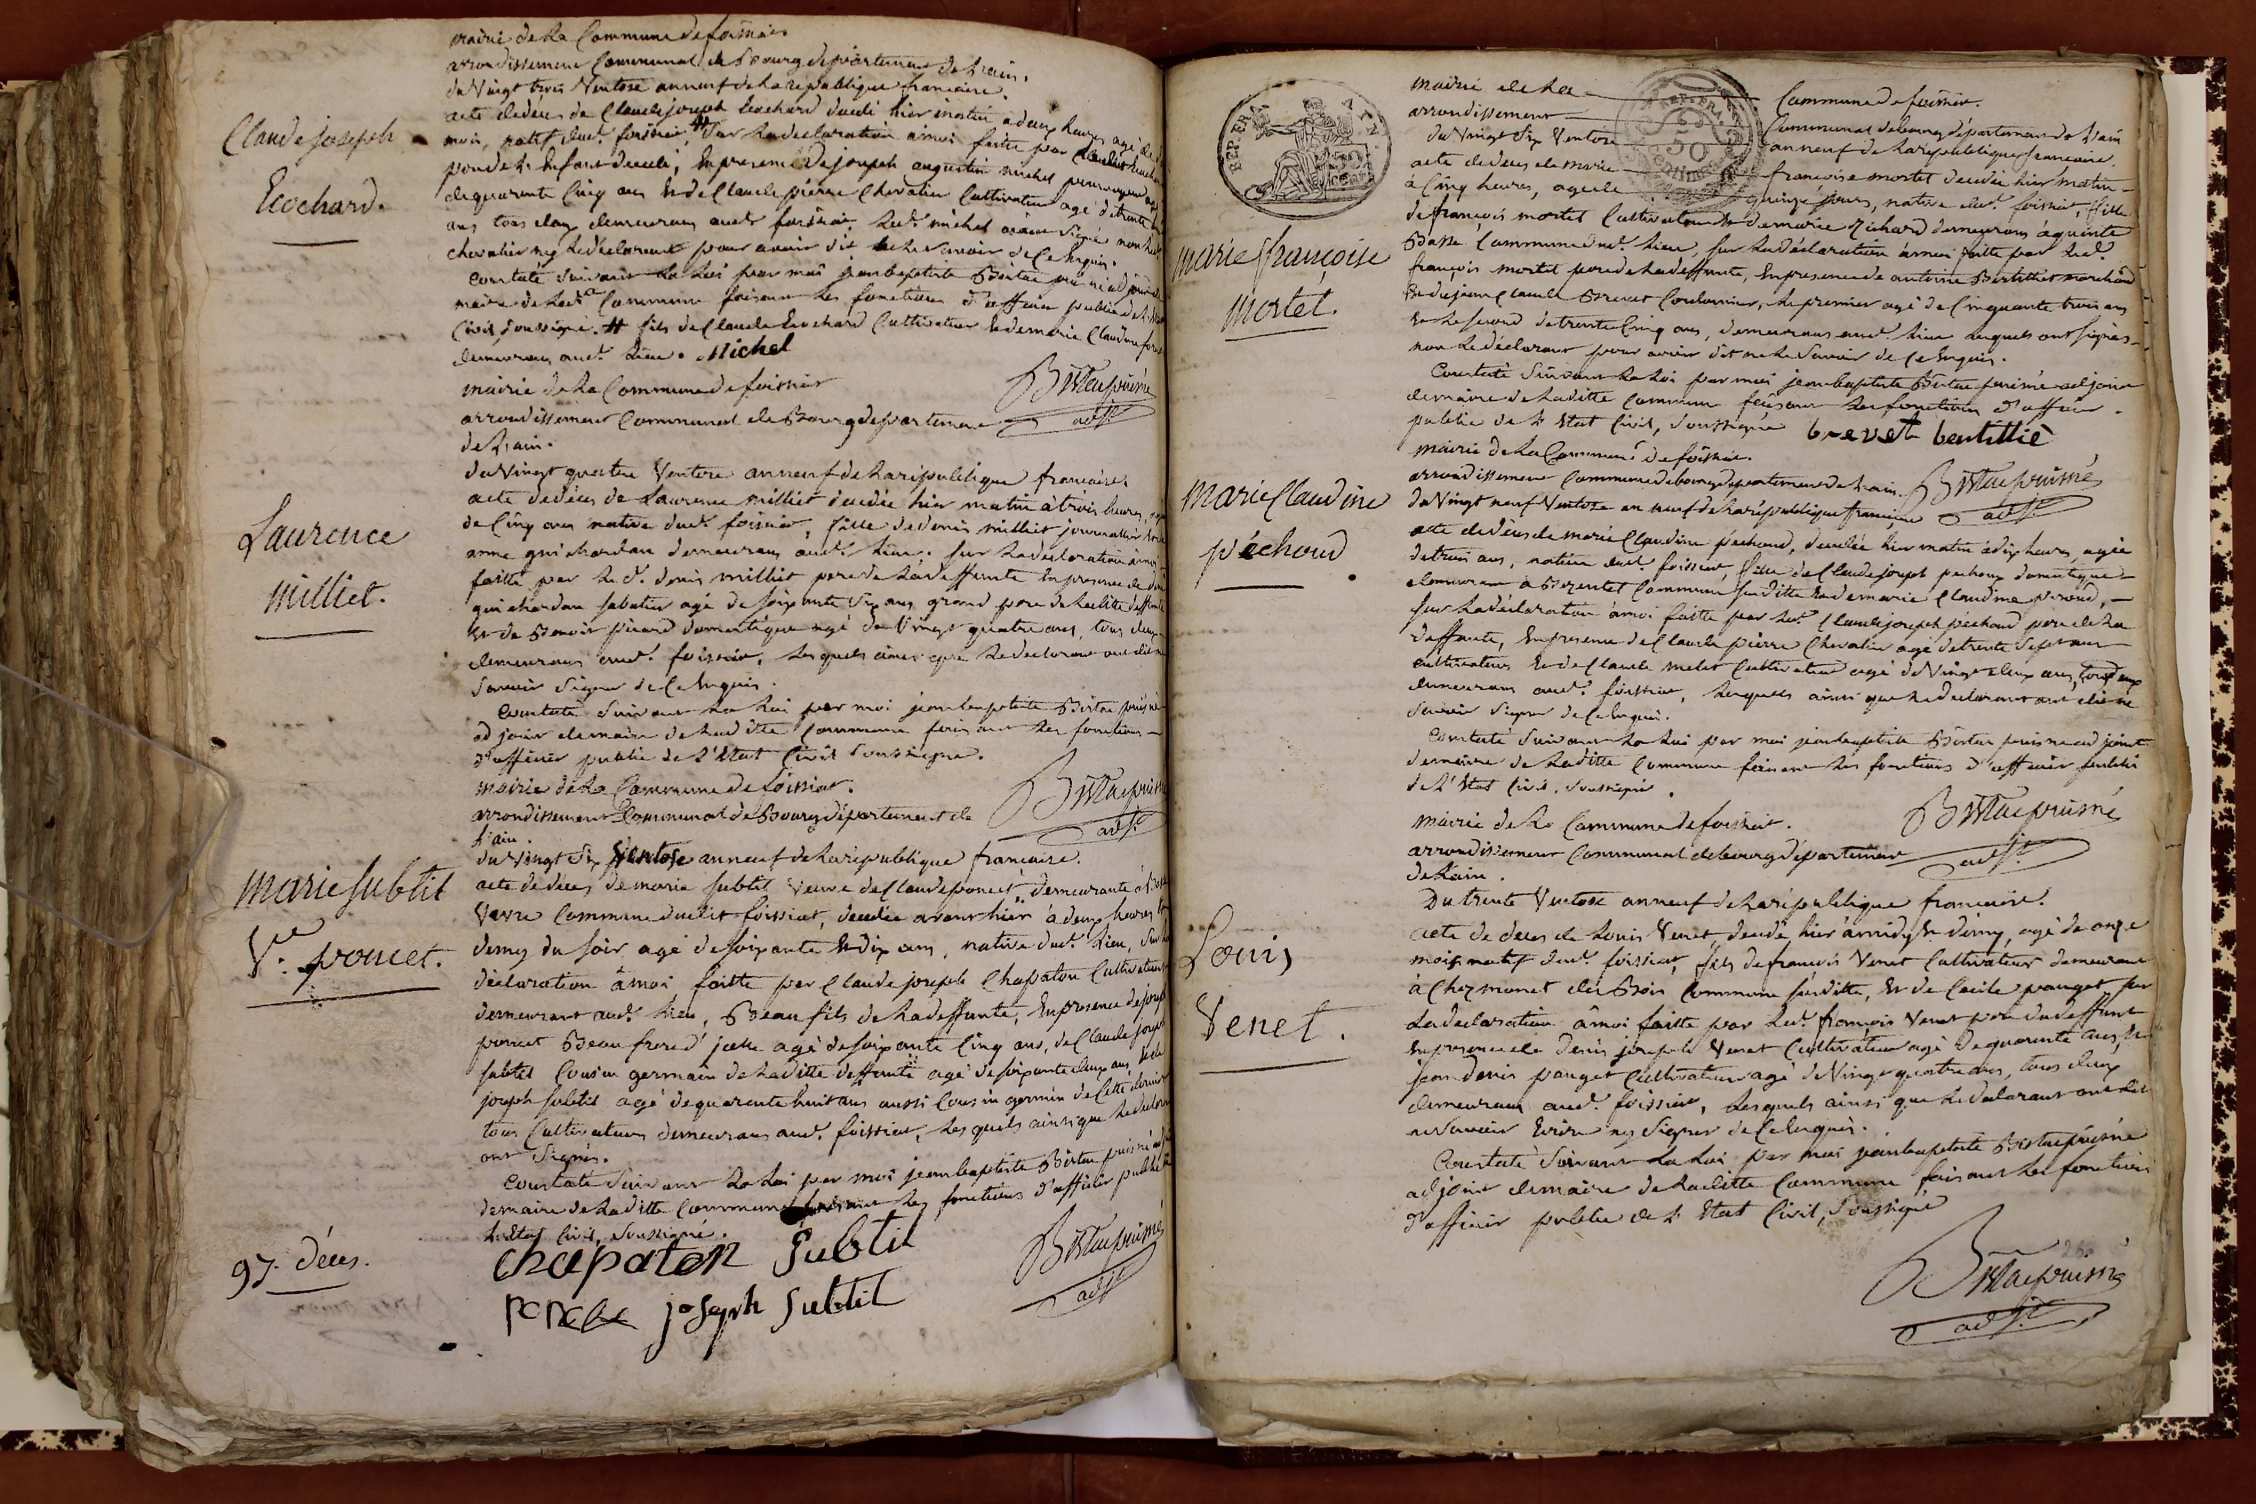 mairie de la Commune de foissiat
arrondissement Communal de Bourg département de l'ain.
du Vingt trois Ventose an neuf de la republique francaise.
acte de déces de Claude joseph Ecochard decedé hier matin a deux heures agé de
mois, natif dud. foissiat, # Sur la declaration a moi faitte par Claude Ecochard
pere de l'enfant decedé, En presence de joseph augustin michel
de quarente Cinq ans Et de Claude pierre Chevalier Cultivateur agé de trente
ans tous deux demeurans aud. foissiat led. michel a signé non led.
chevalier ny le declarant pour avoir dit ne le savoir de Ce Enquis.
Constaté Suivant La Loi par moi jean baptiste
maire de lad. Commune faisant les fonctions d'officier public de l'Etat
Civil, Soussigné. # fils de Claude Ecochard Cultivateur Et de marie Claudine
demeurans aud. Lieu. Michel
adjt.
Claude joseph
Ecochard.
mairie de la Commune de foissiat
arrondissement Communal de Bourg département
de L'ain.
du Vingt quatre Ventose an neuf de la republique francaise.
acte de déces de Laurence milliet decedée hier matin à trois heures, agée
de Cinq ans native dud. foissiat, fille de denis milliet journallier Et de
anne guichardan demeurans aud. Lieu. Sur la declaration à moi
faitte par led. denis milliet pere de la deffunte En presence de
guichardan sabotier agé de soixante Six ans grand pere de ladite deffunte
Et de Benoit picard domestique agé de Vingt quatre ans, tous deux
demeurans aud. foissiat, Lesquels ainsi que le declarant ont dit ne
Savoir Signer de Ce Enquis.
Constaté Suivant La Loi par moi jean baptiste
adjoint de maire de laditte Commune faisant les fonctions
d'officier public de l'Etat Civil Soussigné.
adjt.
Laurence
milliet.
mairie de la Commune de foissiat.
arrondissement Communal de Bourg département de
L'ain.
du Vingt Six Ventose an neuf de la republique francaise.
acte de déces de marie subtil Veuve de Claude poncet, demeurante à
Vavre Commune dudit foissiat, decedée avant hier à deux heures Et
demy du soir agé de soixante Et dix ans, native dud. Lieu, Sur la
déclaration à moi faitte par Claude joseph Chapaton Cultivateur
demeurant aud. Lieu, Beau fils de la deffunte, En presence de joseph
poncet Beau frere d'icelle agé de soixante Cinq ans, de Claude joseph
subtil Cousin germain de laditte deffunte agé de soixante deux ans, Et de
joseph subtil agé de quarente huit ans aussi Cousin germain de Cette derniere
tous Cultivateurs demeurans aud. foissiat, Lesquels ainsi que le declarant
ont Signés.
Constaté Suivant La Loi par moi jean baptiste
de maire de laditte Commune faisant les fonctions d'officier public de
L'Etat Civil, Soussigné.
chapaton Subtil
joseph Subtil
adjt.
Marie Subtil
Vve. poncet.
97. déces.
REP. FRA.
50
mairie de la Commune de foissiat.
arrondissement Communal de bourg département de L'ain
du Vingt Six Ventose an neuf de la republique francaise.
acte de déces de marie francoise mortel decedée hier matin
à Cinq heures, agée de quinze jours, native dud. foissiat, fille
de francois mortel Cultivateur Et de marie Michard demeurans à
Basse, Commune dud. Lieu, Sur la déclaration à moi faitte par led.
françois mortel pere de la deffunte, En presence de antoine marchand
Et de jean Claude Brevet Cordonnier, le premier agé de Cinquante trois ans
Et le second de trente Cinq ans, demeurans aud. Lieu Lesquels ont signés
non le déclarant pour avoir dit ne le Savoir de Ce Enquis.
Constaté Suivant La Loi par moi jean baptiste puiné adjoint
de maire de laditte Commune faisant les fonctions d'officier
public de L'Etat Civil, Soussigné brevet
adjt.
Marie françoise
Mortel.
mairie de la Commune de foissiat.
arrondissement Communal de bourg departement de L'ain.
du Vingt neuf Ventose an neuf de la republique francaise
acte de déces de marie Claudine péchoud, decedée hier matin à dix heures, agée
de trois ans, native dud. foissiat, fille de Claude joseph pechoux domestique
demeurant à Commune susditte Et de marie Claudine
Sur la déclaration à moi faitte par led. Claude joseph péchoud pere de la
deffunte, En presence de Claude pierre Chevalier agé de trente Sept ans
cultivateur Et de Claude Cultivateur agé de Vingt deux ans, tous deux
demeurans aud. foissiat, Lesquels ainsi que le declarant ont dit ne
Savoir Signer de Ce Enquis.
Constaté Suivant La Loi par moi jean baptiste puisné adjoint
de maire de laditte Commune faisant les fonctions d'officier public
de L'Etat Civil, Soussigné.
adjt.
Marie Claudine
péchoud.
mairie de la Commune de foissiat.
arrondissement Communal de bourg département
de L'ain.
Du trente Ventose an neuf de la republique francaise.
acte de déces de Louis Venet, decedé hier à midy Et demy, agé de onze
mois natif dud. foissiat, fils de francois Venet Cultivateur demeurant
à Chez monet des Bois Commune susditte, Et de Cecile pauget Sur
La declaration à moi faitte par led. francois Venet pere du deffunt
En presence de Denis joseph Venet Cultivateur agé de quarente ans, Et
jean denis pauget Cultivateur agé de Vingt quatre ans, tous deux
demeurans aud. foissiat, Lesquels ainsi que le declarant ont dit
ne Savoir Ecrire ny Signer de Ce Enquis.
Constaté Suivant La Loi par moi jean baptiste
adjoint de maire de laditte Commune faisant les fonctions
d'officier public de L'Etat Civil, Soussigné
adjt.
Louis
Venet.